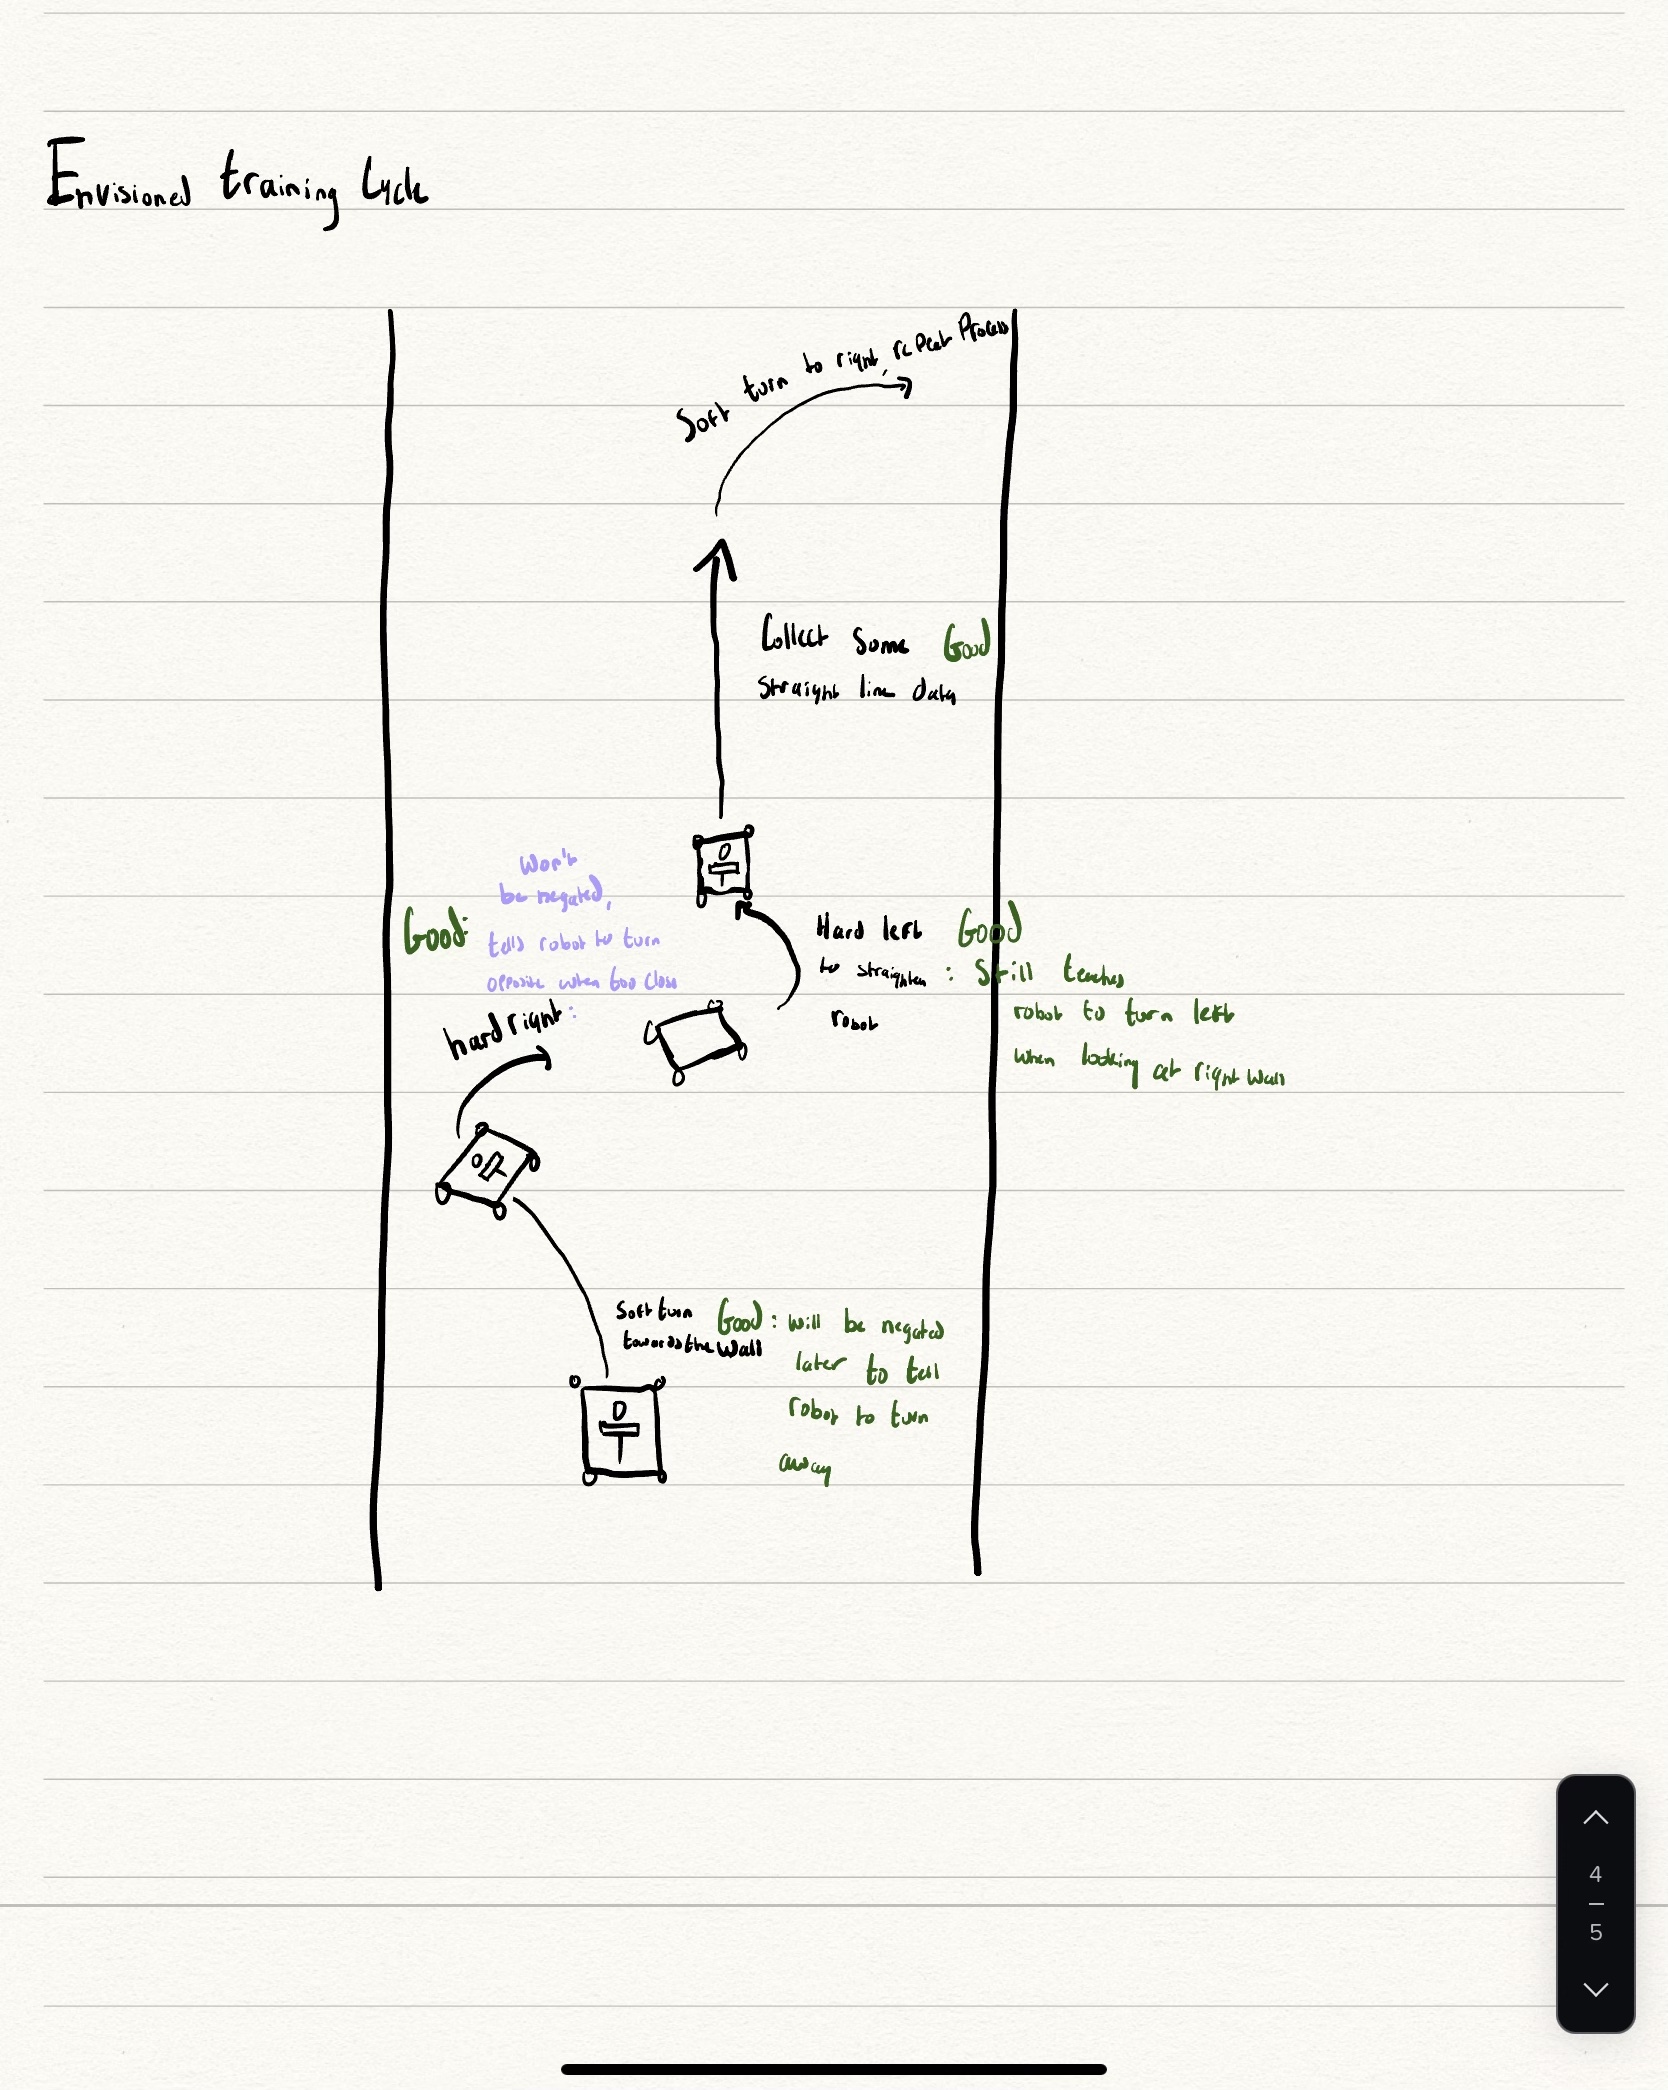 Envisioned training Cycle
Soft turn to right, repeat Process
Collect some Good
straight line data
Won't
be negated,
Good: tells robot to turn
opposite when too close
hard right:
Hard left Good
to straighten : Still teaches
robot
robot to turn left
when looking at right wall
Soft turn Good: will be negated
towards the wall
later to tell
robot to turn
away
4
5